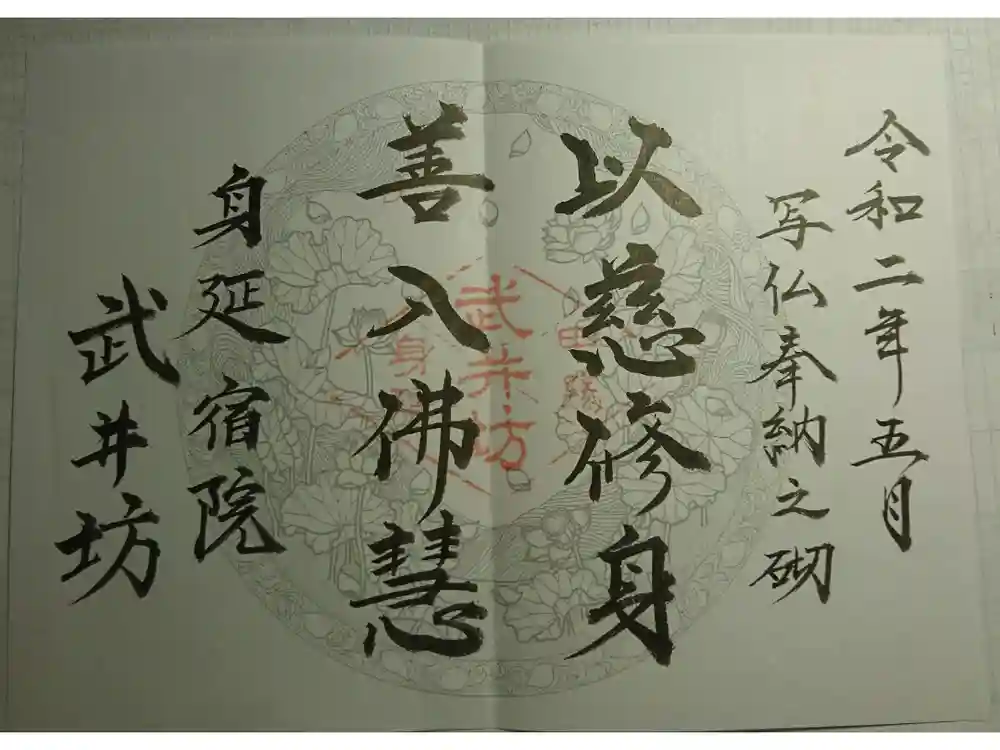 令和二年五月
写仏奉納之砌
以慈修身
善入佛慧
身延 宿院
武井坊
武井坊